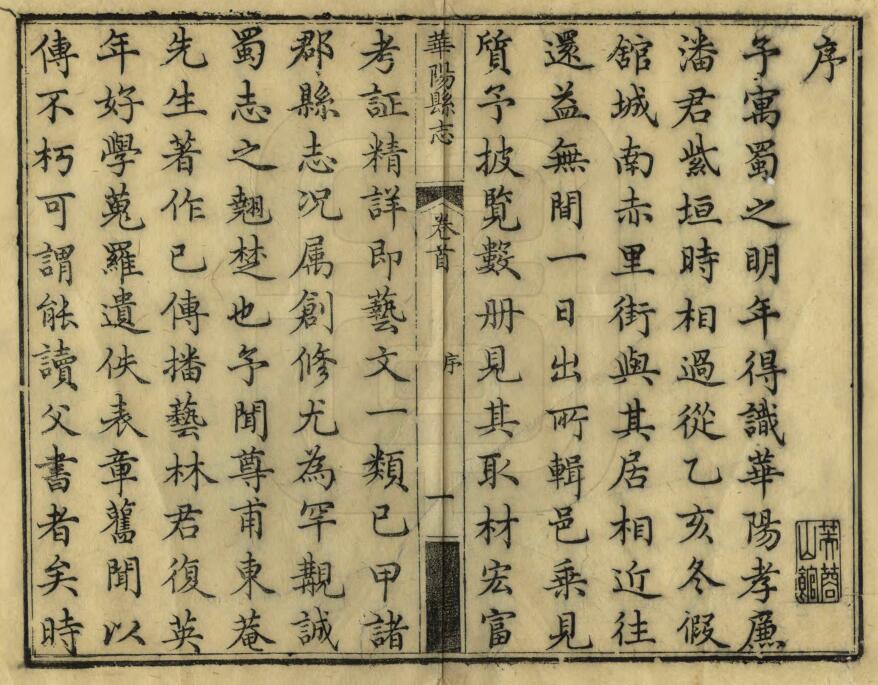 序
予寓蜀之明年得識華陽孝廉
潘君紫垣時相過從乙亥冬假
舘城南赤里街與其居相近往
還益無間一日出所輯邑乗見
質予披覧數册見其取材宏富
華陽縣志 卷首 序 一
考証精詳即藝文一類已甲諸
郡縣志况属創修尤為罕覯誠
蜀志之翹楚也予聞尊甫東菴
先生著作已傳播藝林君復英
年好學蒐羅遺佚表章舊聞以
傳不朽可謂能讀父書者矣時
芙蓉山館